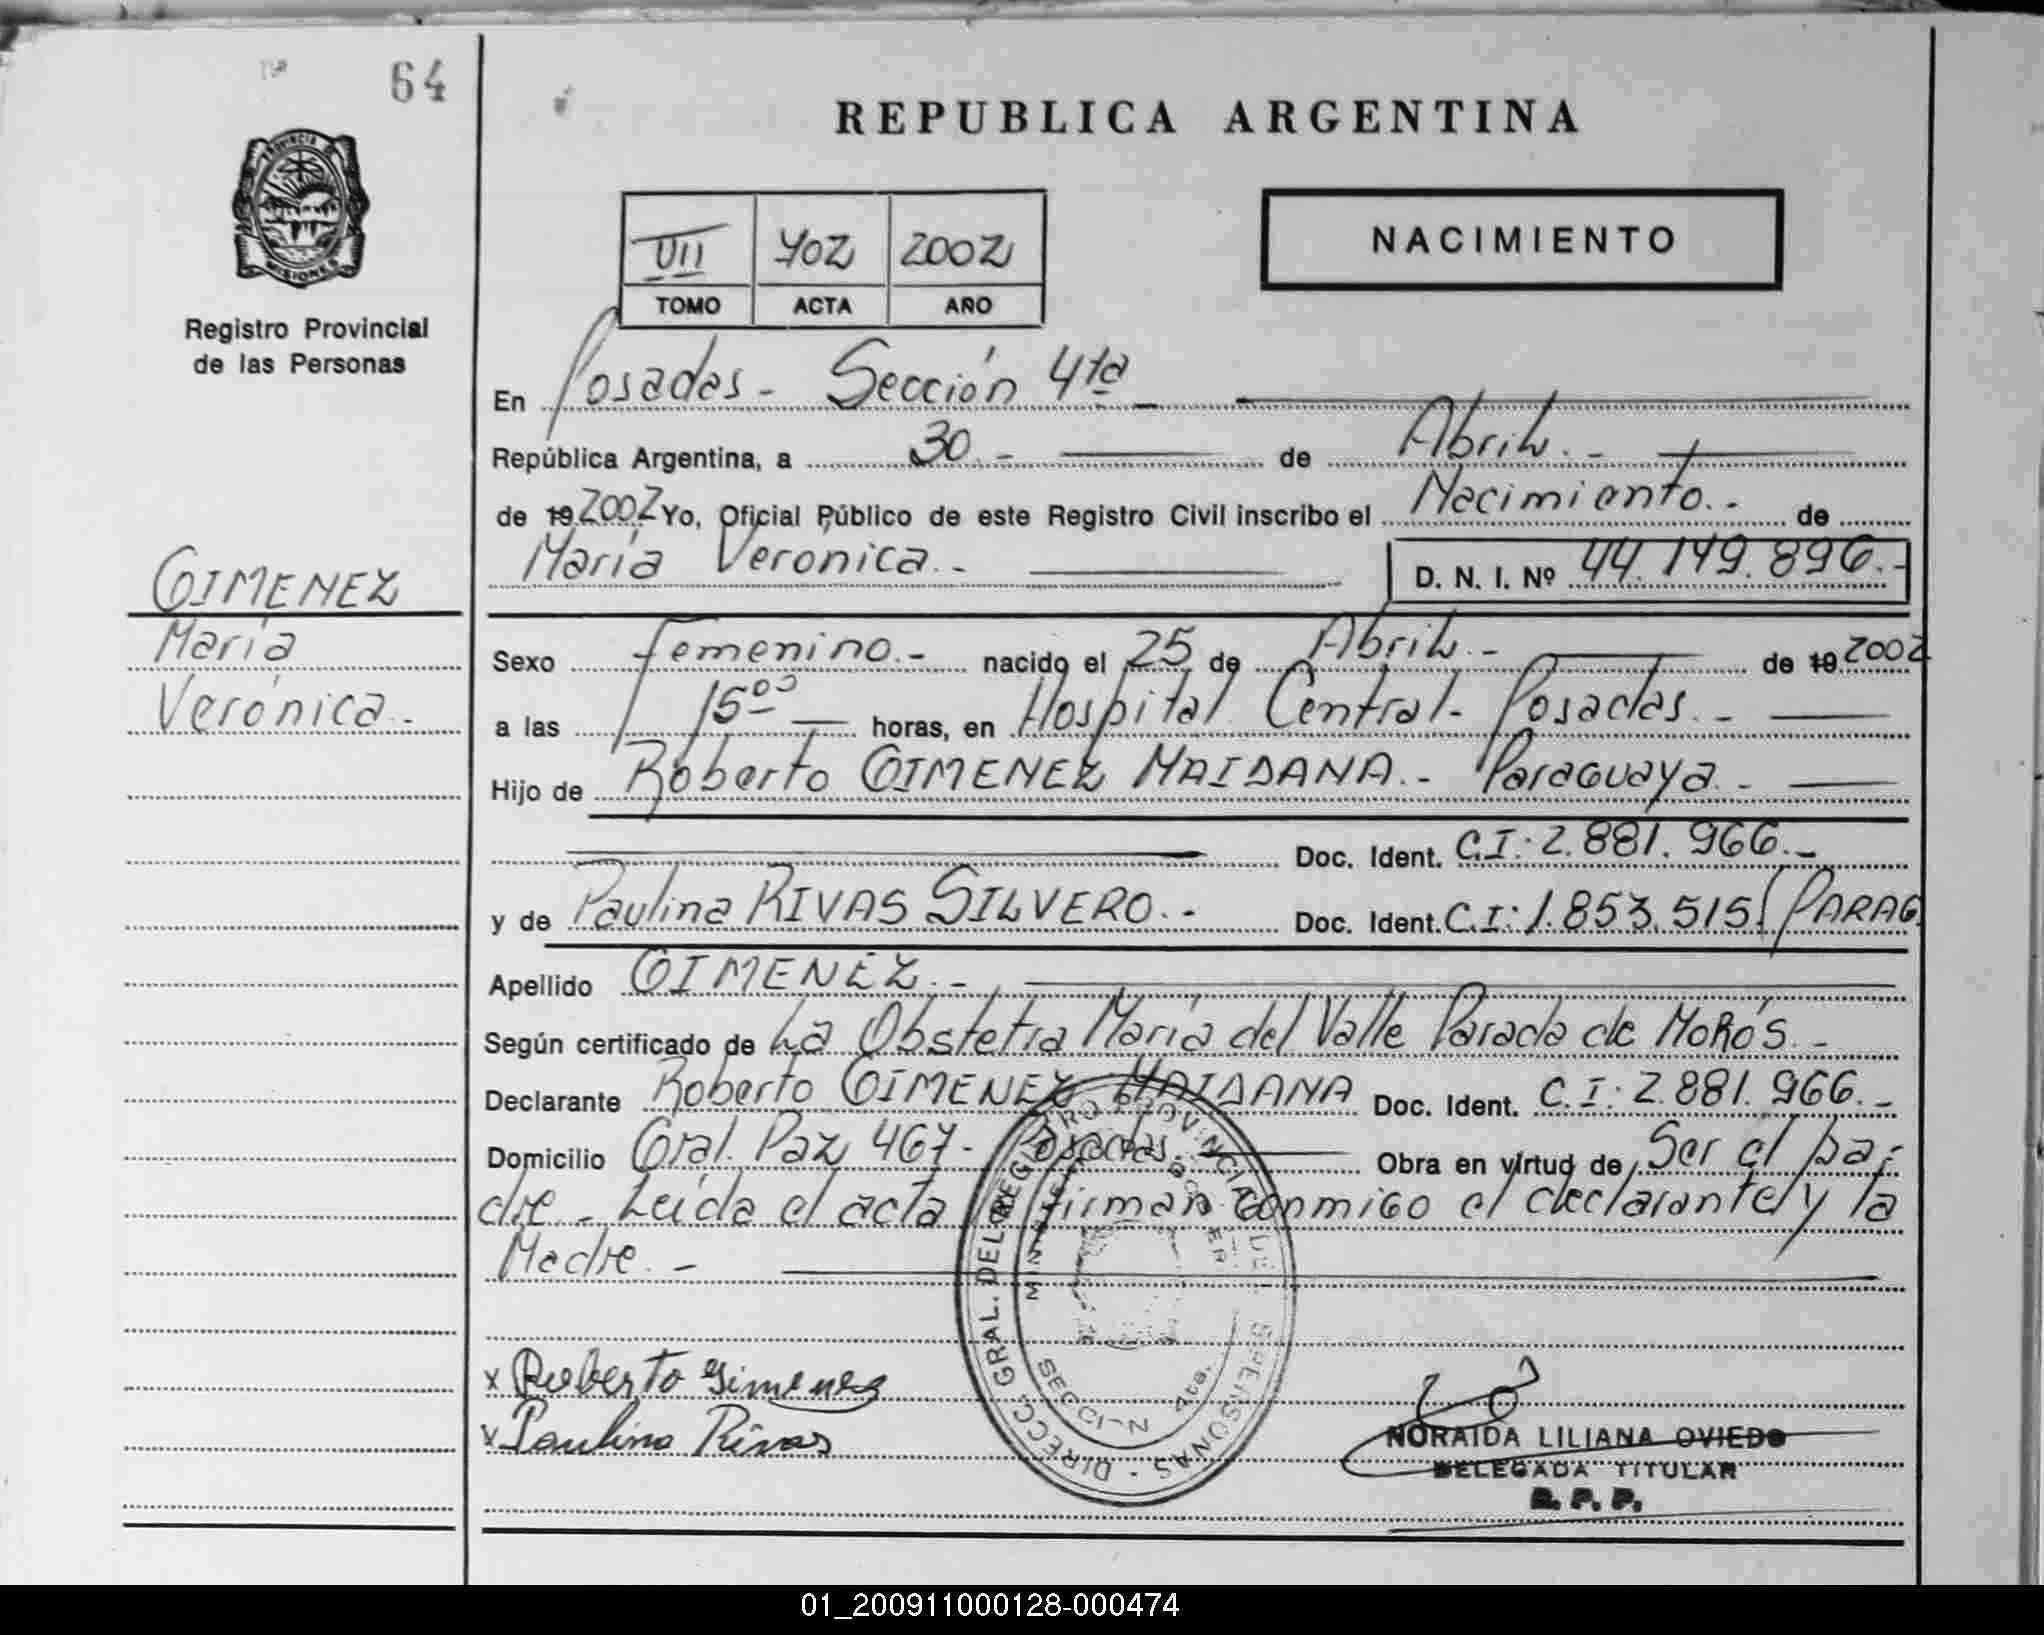 Nº 64
PROVINCIA DE
MISIONES
Registro Provincial
de las Personas
REPUBLICA ARGENTINA
NACIMIENTO
VII 402 2002
TOMO ACTA AÑO
En Posadas - Sección 4ta -
República Argentina, a 30.- de Abril.-
de 19 2002 Yo, Oficial Público de este Registro Civil inscribo el Nacimiento.- de
María Veronica.- D. N. I. Nº 44.149.896.-
GIMENEZ
María
Verónica.-
Sexo femenino.- nacido el 25 de Abril.- de 19 2002
a las 15⁰⁰ horas, en Hospital Central - Posadas.-
Hijo de Roberto GIMENEZ MAIDANA.- Paraguaya.-
Doc. Ident. C.I: 2.881.966.-
y de Paulina RIVAS SILVERO.- Doc. Ident. C.I: 1.853.515 (PARAG
Apellido GIMENEZ.-
Según certificado de La Obstetra María del Valle Parada de MoRós.-
Declarante Roberto GIMENEZ MAIDANA Doc. Ident. C.I: 2.881.966.-
Domicilio Gral. Paz 467 - Posadas. Obra en virtud de Ser el pa-
dre.- Leida el acta firman conmigo el declarante y la
Madre.-
DIRECC. GRAL. DEL REGISTRO PROVINCIAL DE PERSONAS
SECCI-N 4ta.
x Roberto Gimenez
x Paulina Rivas
NORAIDA LILIANA OVIEDO
DELEGADA TITULAR
R. P. P.
01_200911000128-000474